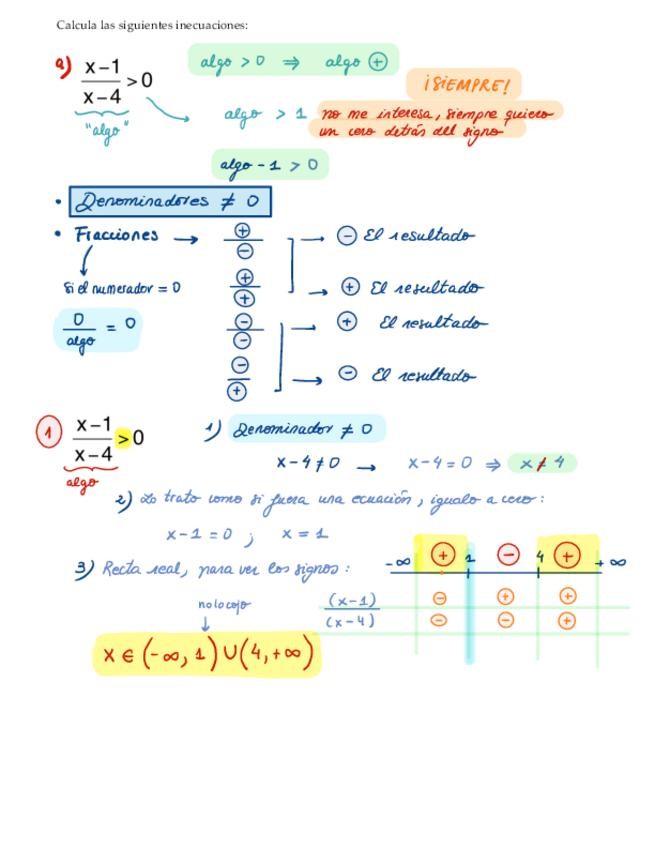 Calcula las siguientes inecuaciones:
a) x-1 / x-4 > 0
algo > 0 ⇒ algo ⊕
"algo"
¡SIEMPRE!
algo > 1 no me interesa, siempre quiero
un cero detrás del signo
algo - 1 > 0
• Denominadores ≠ 0
• Fracciones → ⊕/⊖ → ⊖ El resultado
Si el numerador = 0
⊕/⊕ → ⊕ El resultado
0/algo = 0
⊖/⊖ → ⊕ El resultado
⊖/⊕ → ⊖ El resultado
1 x-1 / x-4 > 0
algo
1) Denominador ≠ 0
x-4 ≠ 0 → x-4 = 0 ⇒ x ≠ 4
2) Lo trato como si fuera una ecuación, igualo a cero:
x-1 = 0 ; x = 1
3) Recta real, para ver los signos:
-∞ ⊕ 1 ⊖ 4 ⊕ +∞
no lo cojo
(x-1) ⊖ ⊕ ⊕
(x-4) ⊖ ⊖ ⊕
x ∈ (-∞, 1) ∪ (4, +∞)